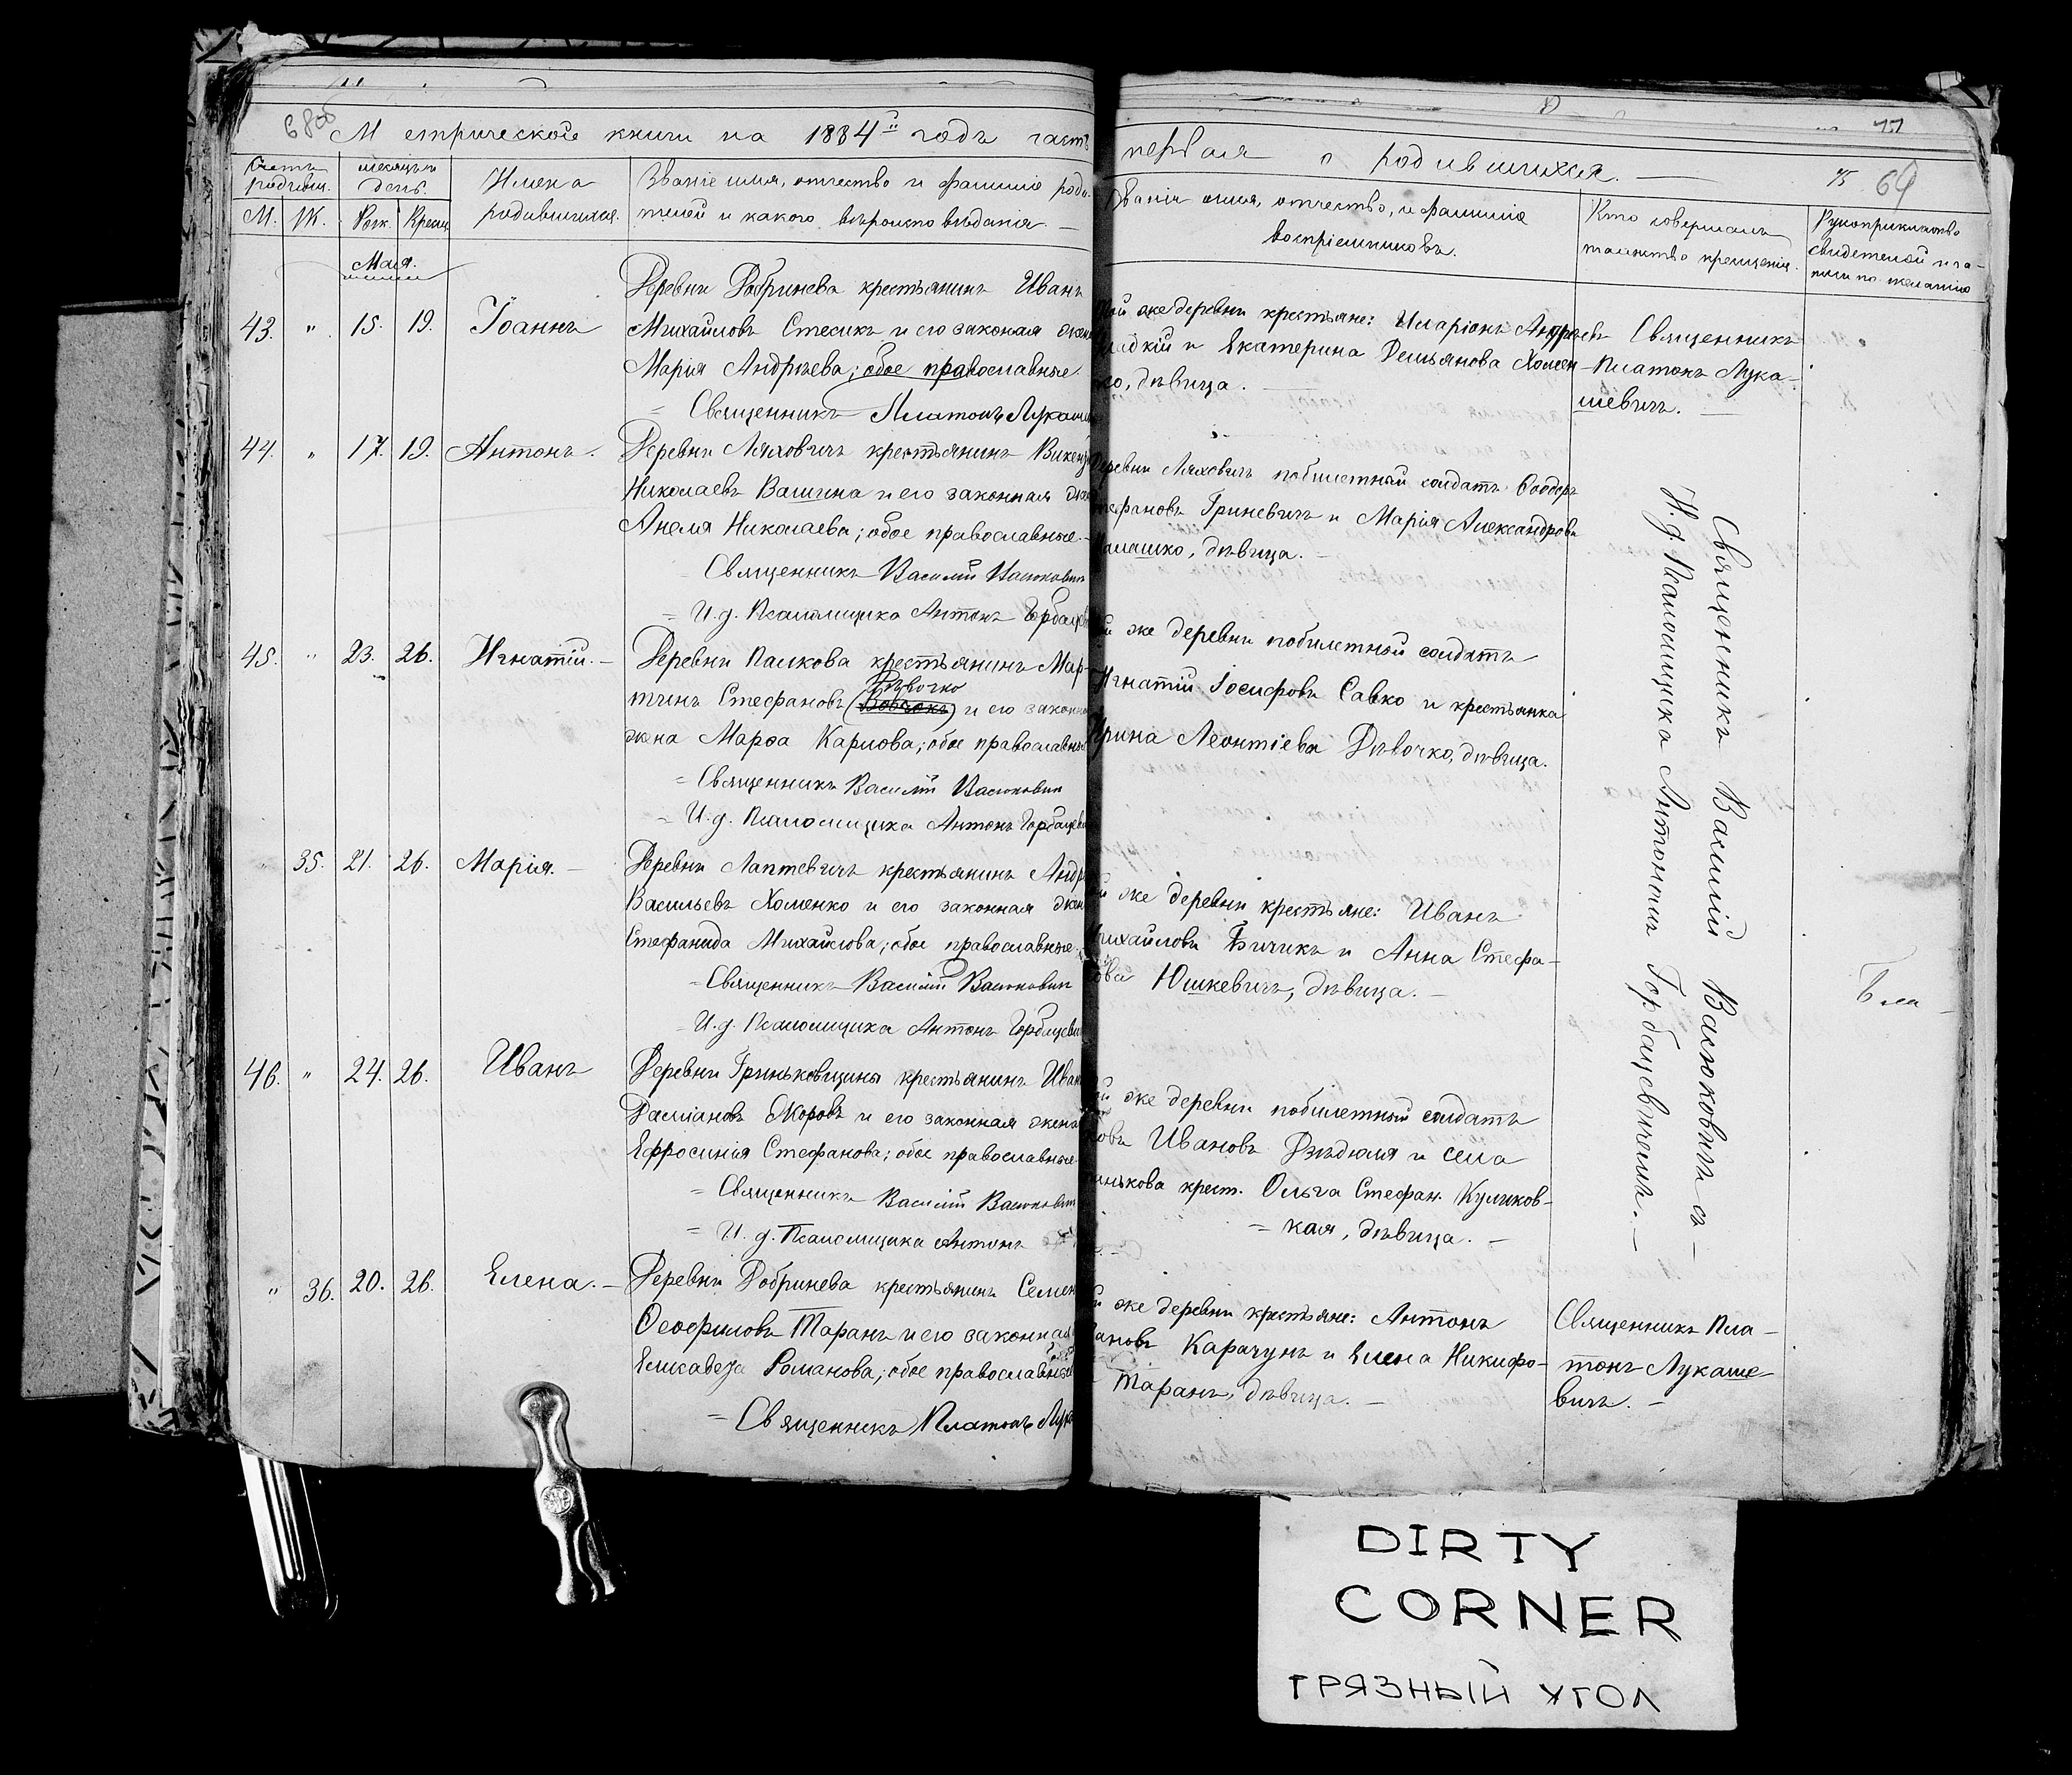 Метрической книги на 1884й годъ часть
первая о родившихся.
64
Счетъ родивш.
Мѣсяцъ и день.
М. Ж. Рож. Крещ.
Имена родившихся.
Званіе имя, отчество и фамилія роди-
телей и какого вѣроисповѣданія.
Званіе имя, отчество, и фамилія
воспріемниковъ.
Кто совершалъ
таинство крещенія.
Рукоприкладство
свидетелей и за-
писи по желанію
Мая.
43. " 15. 19. Іоаннъ
Деревни Добринева крестьянинъ Иванъ
Михайловъ Стесикъ и его законая жена
Марія Андреева; обое православные.
Священникъ Платонъ Лукаш
же деревни крестьяне: Иларіонъ Андреевъ
и Екатерина Демьянова Хомен-
ко, дѣвица.
Священникъ
Платонъ Лука-
шевичъ.
44. " 17. 19. Антонъ.
Деревни Ляховичъ крестьянинъ Викен
Николаевъ Вашина и его законная
Анеля Николаева; обое православные.
Священникъ Василій Васюкович
И. д. Псаломщика Антонъ Горбацев
Деревни Ляховичъ побилетный солдатъ Ѳеодоръ
Стефановъ Гриневичъ и Марія Александрова
Малашко, дѣвица.
45. " 23. 26. Игнатій.
Деревни Палкова крестьянинъ Мар-
тинъ Стефановъ Дѣвочко и его законн
жена Марѳа Карлова; обое православные
Священникъ Василій Васюкович
И. д. Псаломщика Антонъ Горбацеви
же деревни побилетный солдатъ
Игнатій Іосифовъ Савко и крестьянка
Ирина Леонтіева Дѣвочко, дѣвица.
" 35. 21. 26. Марія.
Деревни Лаптевичъ крестьянинъ Андр
Васильевъ Хоменко и его законная жен
Стефанида Михайлова; обое православные.
Священникъ Василій Васюкович
И. д. Псаломщика Антонъ Горбацеви
же деревни крестьяне: Иванъ
Михайловъ Бичикъ и Анна Стефа-
нова Юшкевичъ, дѣвица.
46. " 24. 26. Иванъ
Деревни Гриньковщины крестьянинъ Иван
Даміановъ Жоровъ и его законная жена
Ефросинія Стефанова; обое православные
Священникъ Василій Васюкович
И. д. Псаломщика Антонъ
же деревни побилетный солдатъ
Ивановъ и села
крест. Ольга Стефан. Куликов-
кая, дѣвица.
Священникъ Василій Васюковичъ съ
И. д. Псаломщика Антоніемъ Горбацевичемъ.
" 36. 20. 26. Елена.
Деревни Добринева крестьянинъ Семен
Ѳеофиловъ Таранъ и его законная
Елисавета Романова; обое православные
Священникъ Платонъ Лук
же деревни крестьяне: Антонъ
Карачунъ и Елена Никифо-
Таранъ, дѣвица.
Священникъ Пла-
тонъ Лукаше-
вичъ.
DIRTY
CORNER
ГРЯЗНЫЙ УГОЛ